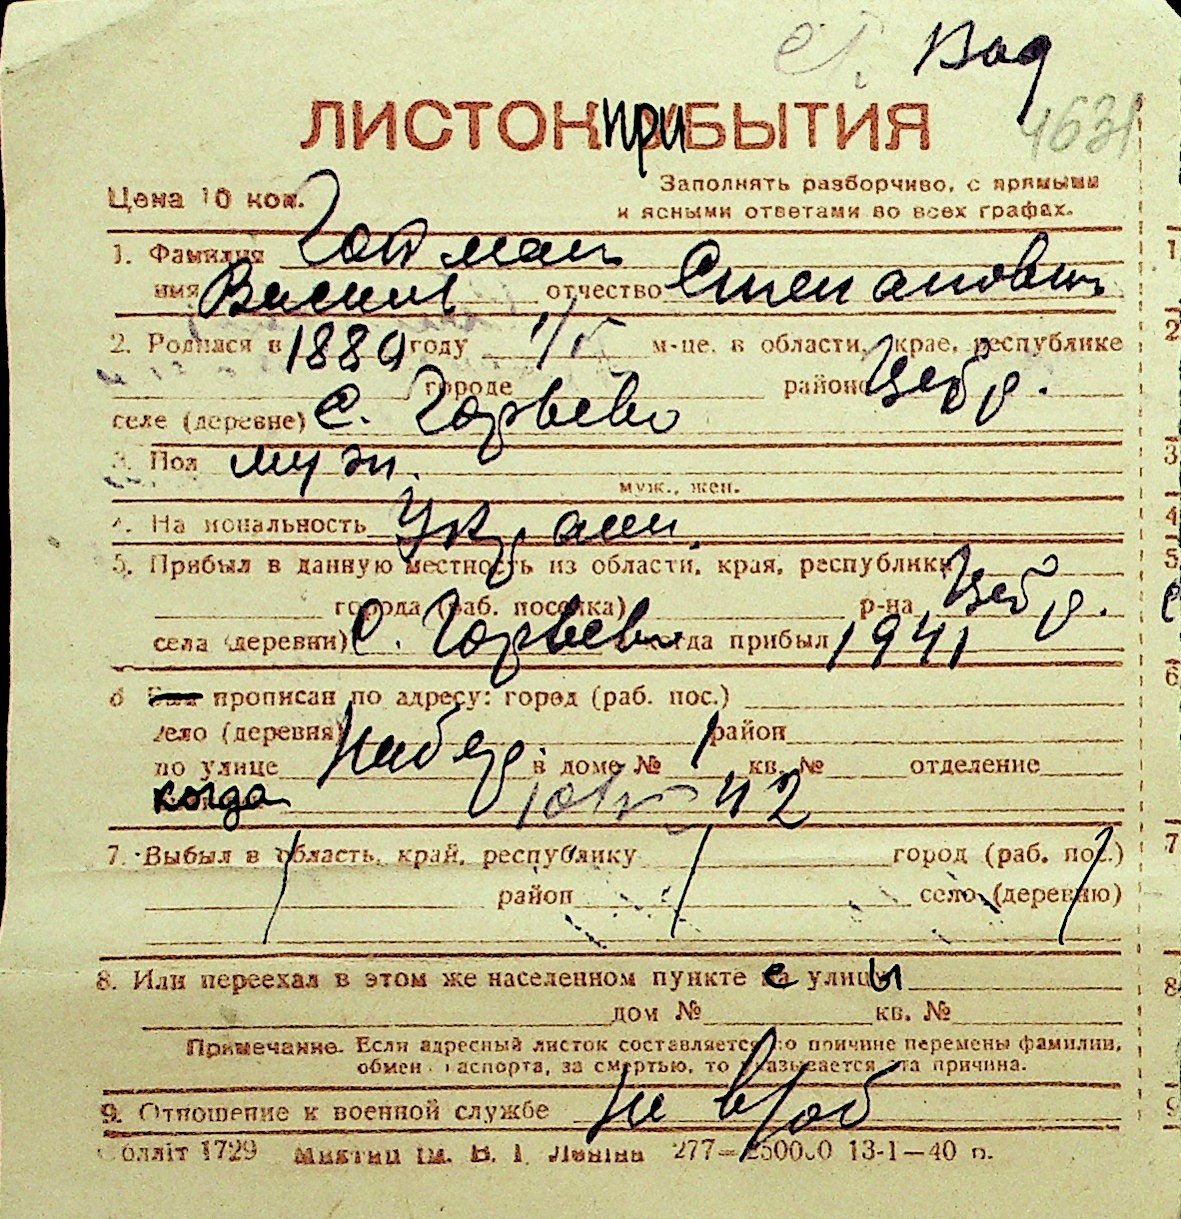 Вод
4631
ЛИСТОК ПРИБЫТИЯ
Цена 10 коп.
Заполнять разборчиво, с прямыми
и ясными ответами во всех графах.
1. Фамилия Гойман
имя Васил отчество Степанович
2. Родился в 1889 году 1/5 м-це, в области, крае, республике
городе районе Цебр.
селе (деревне) с. Горьево
3. Пол муж.
муж., жен.
4. Национальность Украин.
5. Прибыл в данную местность из области, края, республики
города (раб. поселка) р-на Цебр.
села (деревни) с. Горьево когда прибыл 1941
6 прописан по адресу: город (раб. пос.)
село (деревня) район
по улице Набер. в доме № 1 кв. № отделение
когда 42
7. Выбыл в область, край, республику город (раб. пос.)
район село (деревню)
8. Или переехал в этом же населенном пункте с улицы
дом № кв. №
Примечание. Если адресный листок составляется по причине перемены фамилии,
обмен паспорта, за смертью, то указывается эта причина.
9. Отношение к военной службе не в/об
Болліт 1729 ім. В. І. Леніна 277—250000 13-1—40 п.